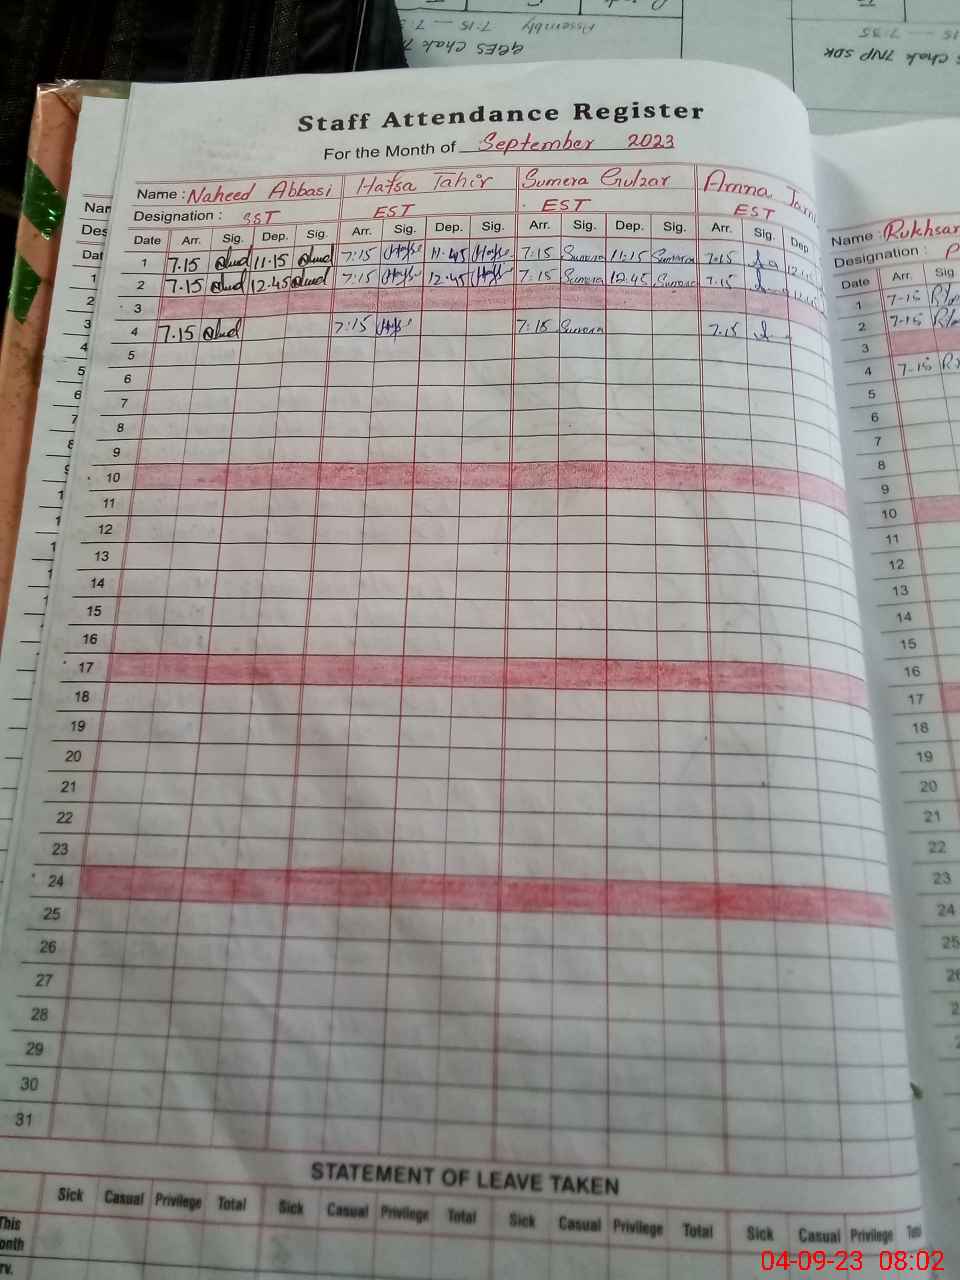 Assembly 7:15 — 7:3
GGES Chak 7
15 — 7:35
Chak 7NP SDK
Staff Attendance Register
For the Month of September 2023
Name : Naheed Abbasi Hafsa Tahir Sumera Gulzar Amna
Designation : SST EST EST EST
Date Arr. Sig. Dep. Sig. Arr. Sig. Dep. Sig. Arr. Sig. Dep. Sig. Arr. Sig. Dep
1 7.15 11.15 7:15 11.45 7:15 Sumera 11:15 Sumera 7.15
2 7.15 12.45 7:15 12.45 7:15 Sumera 12.45 Sumera 7.15
3
4 7.15 7:15 7:15 Sumera 7.15
5
6
7
8
9
10
11
12
13
14
15
16
17
18
19
20
21
22
23
24
25
26
27
28
29
30
31
STATEMENT OF LEAVE TAKEN
Sick Casual Privilege Total Sick Casual Privilege Total Sick Casual Privilege Total Sick Casual Privilege
This
onth
rv.
Name : Rukhsar
Designation :
Date Arr. Sig
1 7-15
2 7-15
3
4 7-15
5
6
7
8
9
10
11
12
13
14
15
16
17
18
19
20
21
22
23
24
25
04-09-23 08:02